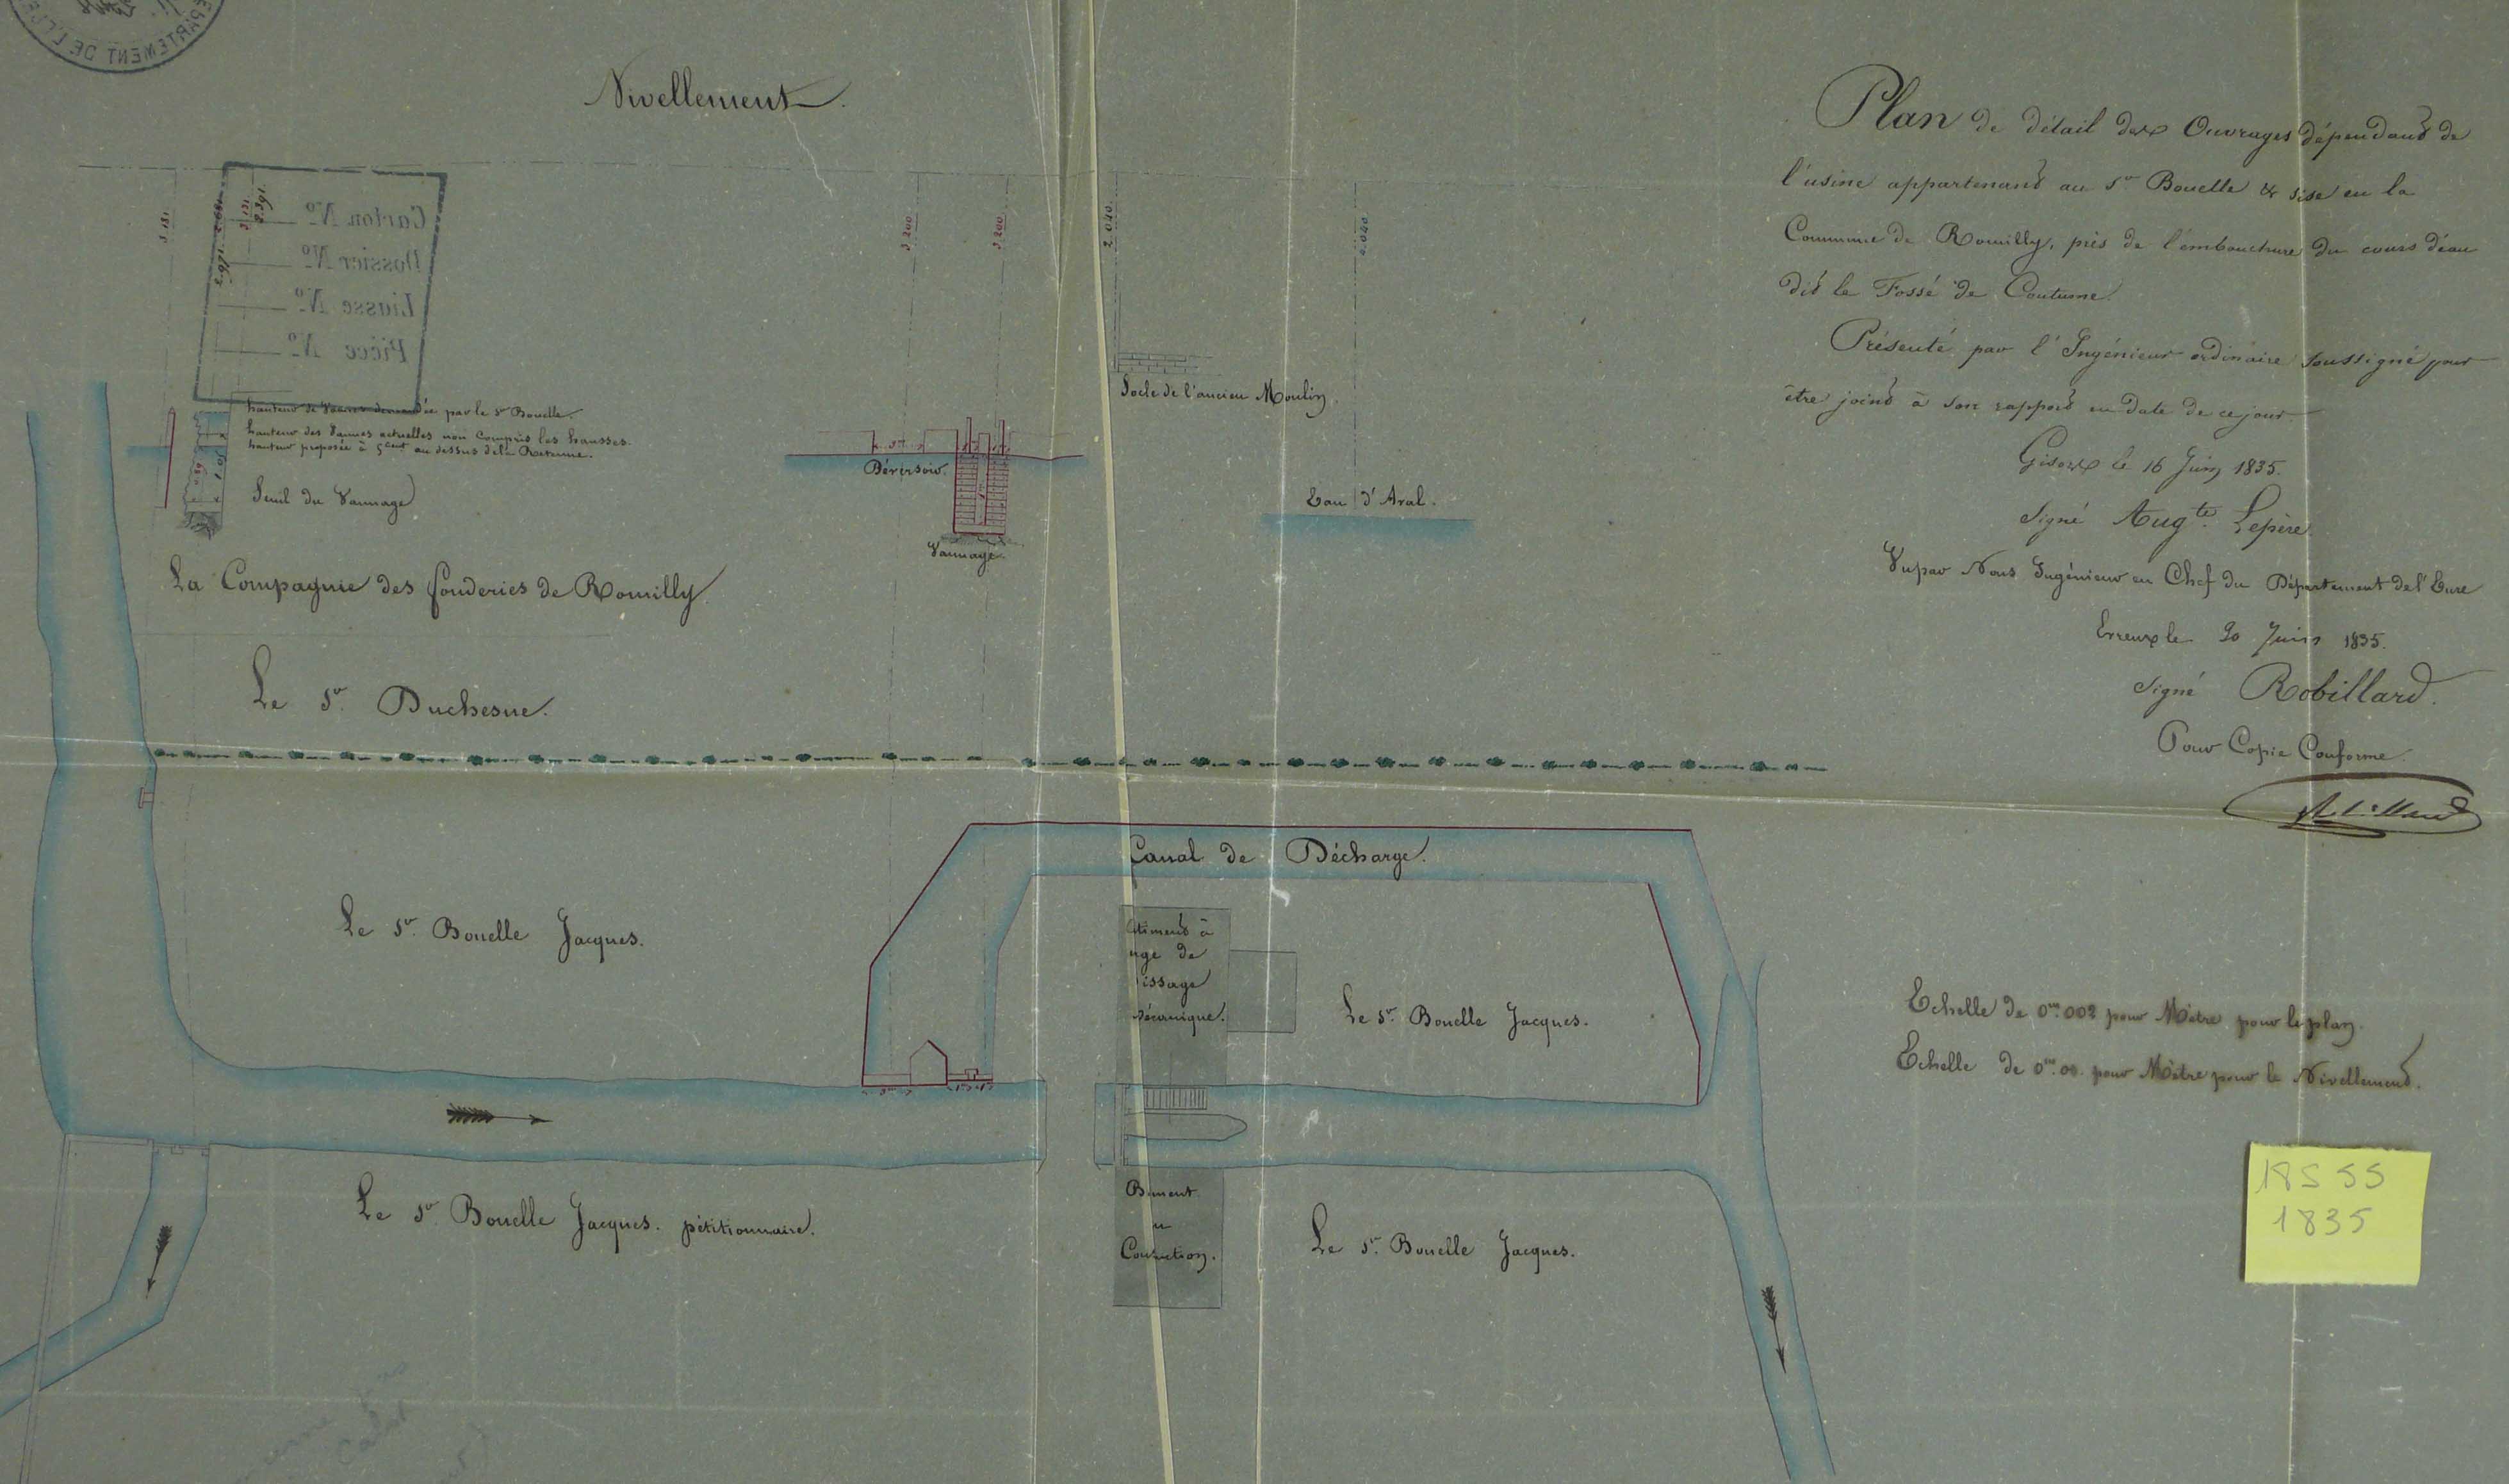 DÉPARTEMENT DE L'EURE
Nivellement.
Plan de détail des Ouvrages dépendans de
l'usine appartenant au Sr Bouelle & sise en la
Commune de Romilly, près de l'embouchure du cours d'eau
dit le Fossé de Coutume.
Présenté par l'Ingénieur ordinaire soussigné pour
être joint à son rapport en date de ce jour.
Gisors le 16 Juin 1835.
Signé Augte. Lepère.
Vu par Nous Ingénieur en Chef du Département de l'Eure
Evreux le 20 Juin 1835.
Signé Robillard.
Pour Copie Conforme.
3.131
3.131
2.391
3.200
3.200
2.040
4.040
Carton No
Dossier No
Liasse No
Pièce No
hauteur de Vannes demandée par le Sr Bouelle.
hauteur des Vannes actuelles non compris les hausses.
hauteur proposée à 5cent au dessus de la Retenue.
Seuil du Vannage
Socle de l'ancien Moulin.
3m
Déversoir.
Vannage.
Eau d'Aval.
La Compagnie des fonderies de Romilly.
Le Sr. Duchesne.
Canal de Décharge.
Le Sr. Bouelle Jacques.
timent à
age de
issage
mécanique.
Le Sr. Bouelle Jacques.
3m
1m 1m
Echelle de 0m.002 pour Mètre pour le plan.
Echelle de 0m.01 pour Mètre pour le Nivellement.
Le Sr. Bouelle Jacques. pétitionnaire.
Le Sr. Bouelle Jacques.
18S 55
1835